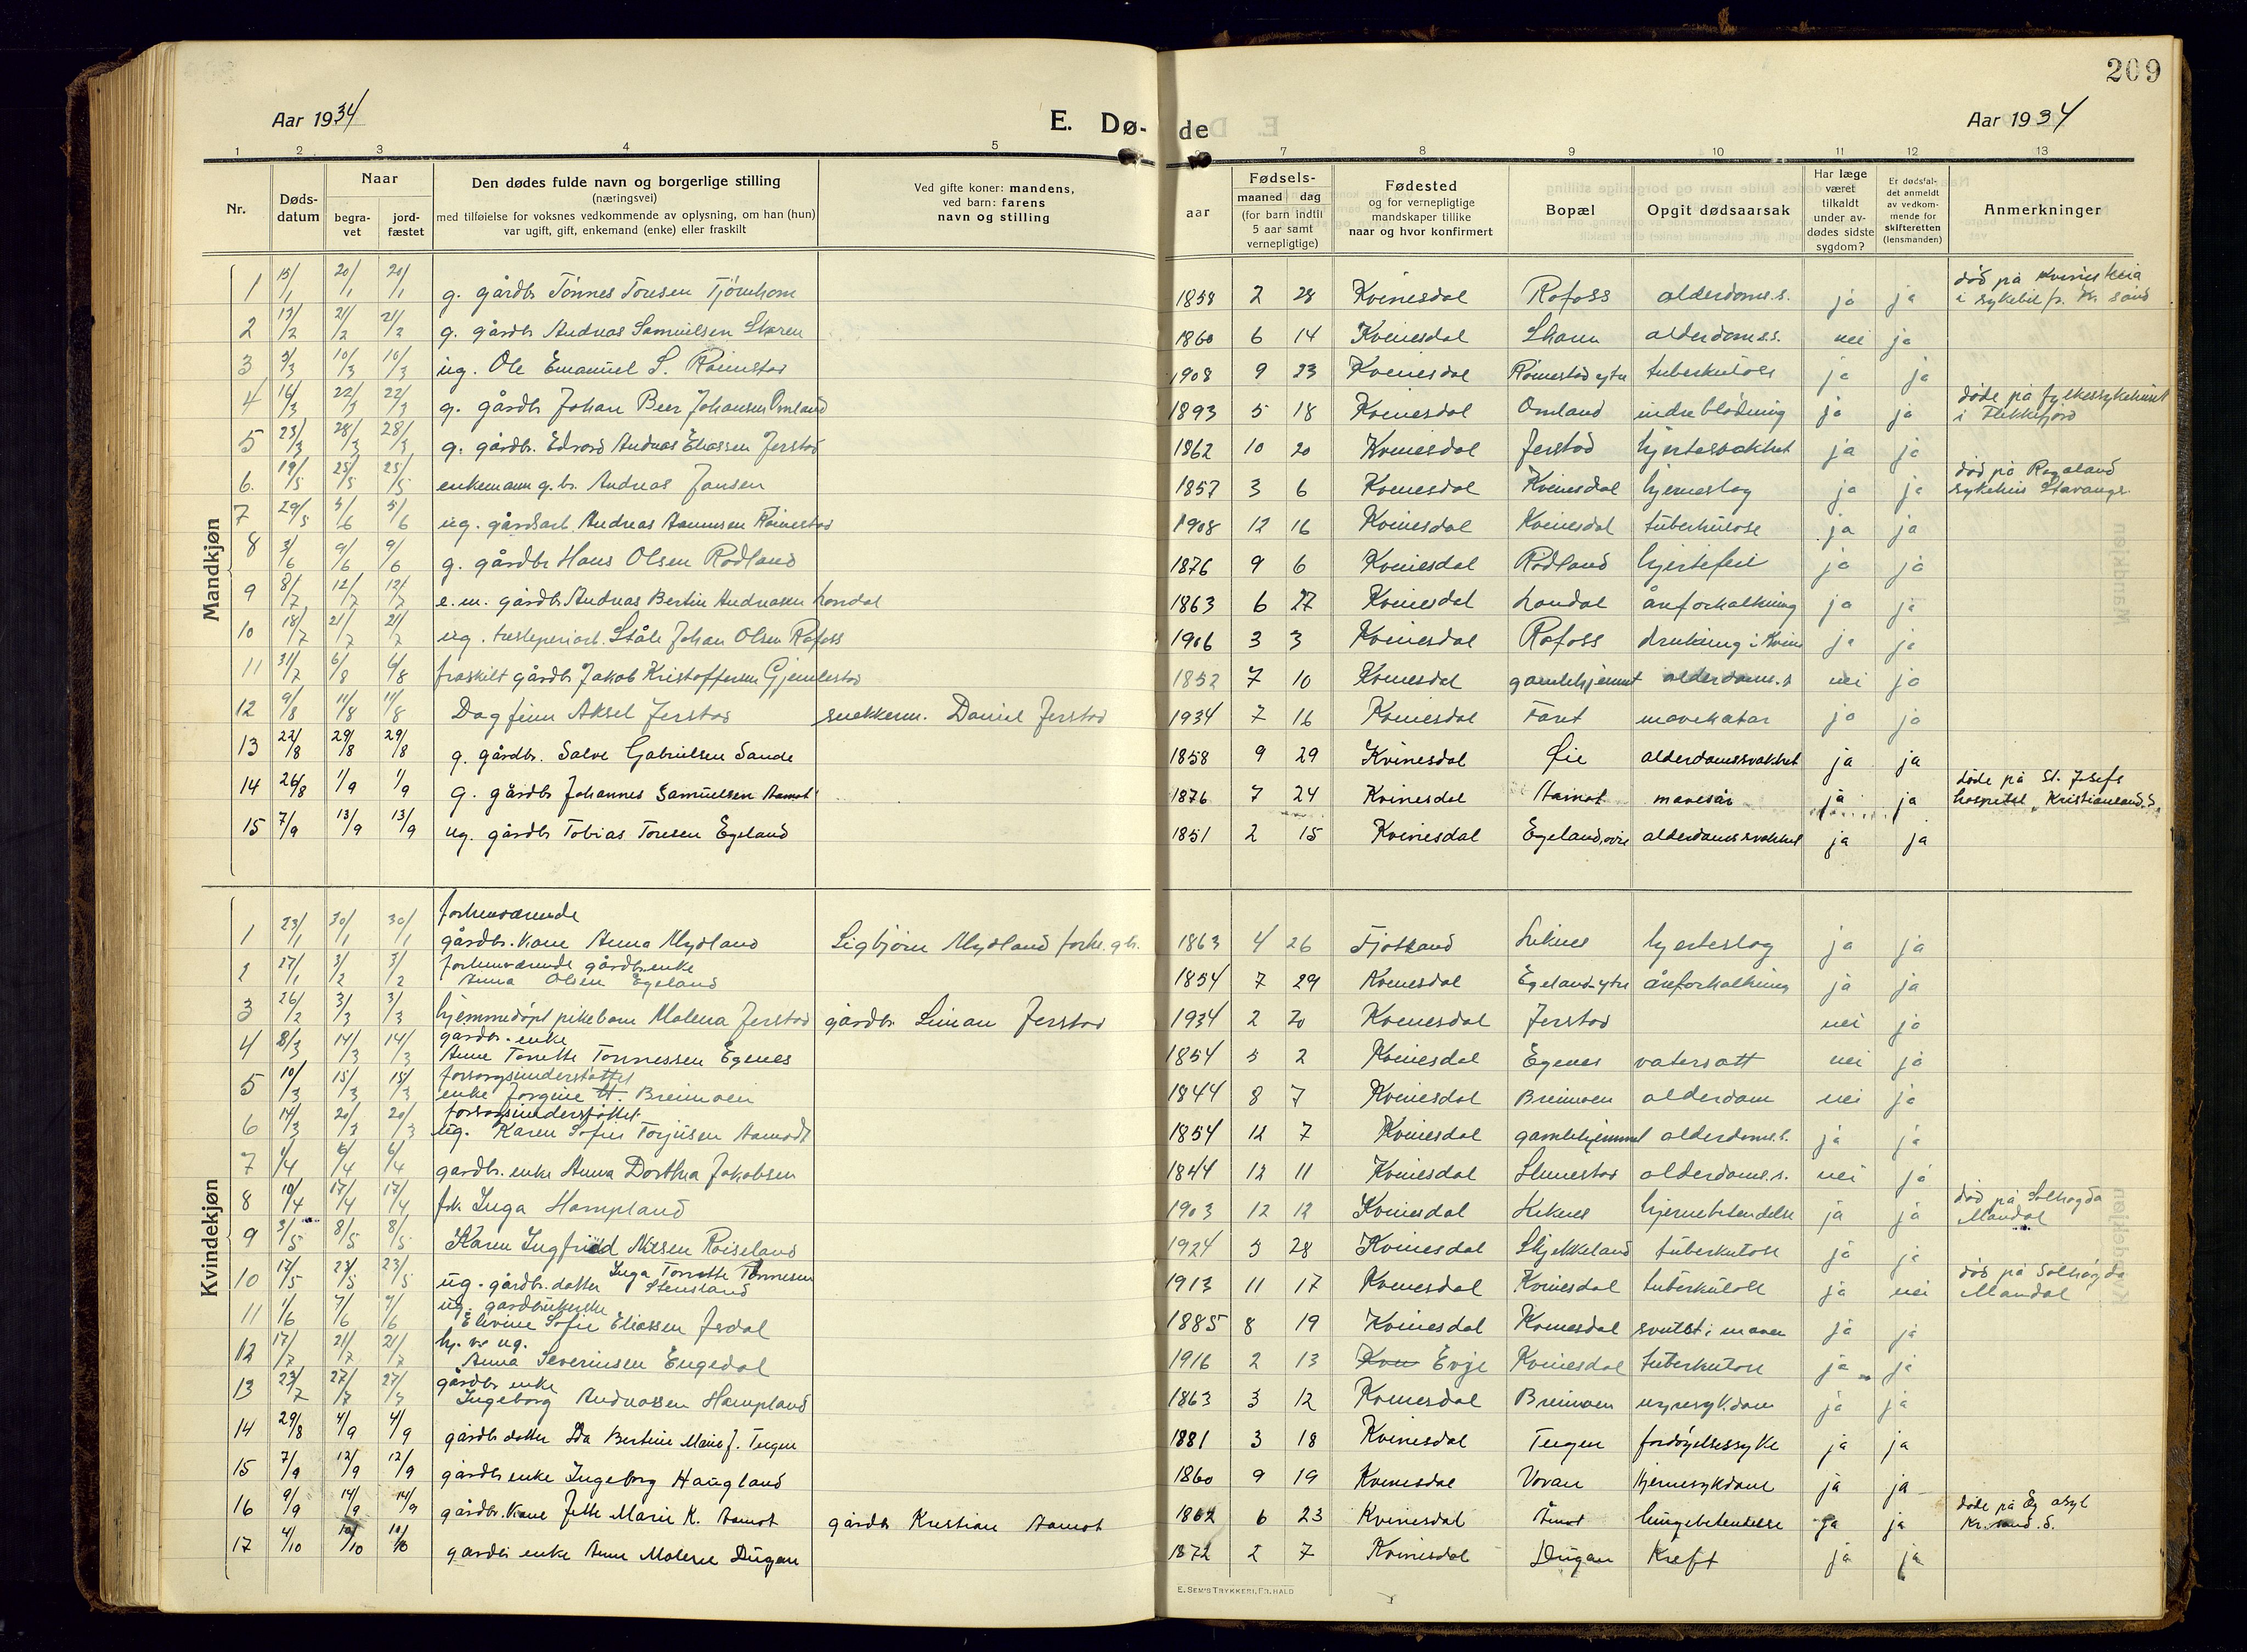 209
Aar 1934
E. Dø- de
Aar 1934
1 2 3 4 5 7 8 9 10 11 12 13
Nr. Døds-datum Naar begra-vet jord-fæstet Den dødes fulde navn og borgerlige stilling (næringsvei) med tilføielse for voksnes vedkommende av oplysning, om han (hun) var ugift, gift, enkemand (enke) eller fraskilt Ved gifte koner: mandens, ved barn: farens navn og stilling aar Fødsels- maaned dag (for barn indtil 5 aar samt vernepligtige) Fødested og for vernepligtige mandskaper tillike naar og hvor konfirmert Bopæl Opgit dødsaarsak Har læge været tilkaldt under av-dødes sidste sygdom? Er dødsfal-det anmeldt av vedkom-mende for skifteretten (lensmanden) Anmerkninger
Mandkjøn
1 15/1 20/1 20/1 g. gårdbr Tønnes Tonesen Tjørnhom 1858 2 28 Kvinesdal Rafoss alderdoms.s. ja ja død på Kvinesheia i sykebil fr. Kr. sand
2 13/2 21/2 21/2 g. gårdbr Andreas Samuelsen Skaren 1860 6 14 Kvinesdal Skaren alderdoms.s. nei ja
3 3/3 10/3 10/3 ug. Ole Emanuel S. Røinestad 1908 9 23 Kvinesdal Røinestad ytre tuberkulose ja ja
4 16/3 22/3 22/3 g. gårdbr Johan Beer Johansen Omland 1893 5 18 Kvinesdal Omland indre blødning ja ja døde på fylkessykehuset i Flekkefjord
5 23/3 28/3 28/3 g. gårdbr. Edvard Andreas Eliassen Jerstad 1862 10 20 Kvinesdal Jerstad hjertesvakhet ja ja
6. 19/5 25/5 25/5 enkemann g.br. Andreas Jansen 1857 3 6 Kvinesdal Kvinesdal hjerneslag ja ja død på Rogaland sykehus Stavanger
7 29/5 5/6 5/6 ug. gårdsarb. Andreas Aanunsen Røinestad 1908 12 16 Kvinesdal Kvinesdal tuberkulose ja ja
8 3/6 9/6 9/6 g. gårdbr Hans Olsen Rødland 1876 9 6 Kvinesdal Rødland hjertefeil ja ja
9 8/7 12/7 12/7 e.m. gårdbr Andreas Bertin Andreasen Londal 1863 6 27 Kvinesdal Londal åreforkalkning ja ja
10 18/7 21/7 21/7 ug. tresliperiarb. Ståle Johan Olsen Rafoss 1906 3 3 Kvinesdal Rafoss drukning i Kvina ja ja
11 31/7 6/8 6/8 fraskilt gårdbr Jakob Kristoffersen Gjemlestad 1852 7 10 Kvinesdal gamlehjemmet alderdoms.s nei ja
12 9/8 11/8 11/8 Dagfinn Aksel Jerstad snekkerm. Daniel Jerstad 1934 7 16 Kvinesdal Faret mavekatar ja ja
13 22/8 29/8 29/8 g. gårdbr. Salve Gabrielsen Sande 1858 9 29 Kvinesdal Øie alderdomssvakhet ja ja
14 26/8 1/9 1/9 g. gårdbr Johannes Samuelsen Aamot 1876 7 24 Kvinesdal Aamot mavesår ja ja døde på St. Josefs hospital, Kristiansand.S.
15 7/9 13/9 13/9 ug. gårdbr Tobias Toresen Egeland 1851 2 15 Kvinesdal Egeland, øvre alderdomssvakhet ja ja
Kvindekjøn
1 23/1 30/1 30/1 forhenværende gårdbr. kone Anna Mydland Sigbjørn Mydland forhv. gb. 1863 4 26 Fjotland Liknes hjerteslag ja ja
2 27/1 3/2 3/2 forhenværende gårdbr.enke Anna Olsen Egeland 1854 7 29 Kvinesdal Egeland-ytre åreforkalkning ja ja
3 26/2 3/3 3/3 hjemmedøpt pikebarn Malena Jerstad gårdbr. Simon Jerstad 1934 2 20 Kvinesdal Jerstad nei ja
4 8/3 14/3 14/3 gårdbr.-enke Anne Tonette Tønnessen Egenes 1854 5 2 Kvinesdal Egenes vatersott nei ja
5 10/3 15/3 15/3 forsorgsunderstøttet enke Jorgine H. Breimoen 1844 8 7 Kvinesdal Breimoen alderdom nei ja
6 14/3 20/3 20/3 forsorgsunderstøttet ug. Karen Sofie Torjusen Aamodt 1854 12 7 Kvinesdal gamlehjemmet alderdoms.s. ja ja
7 1/4 6/4 6/4 gardbr. enke Anna Dorthea Jakobsen 1844 12 11 Kvinesdal Slimestad alderdoms.s. nei ja
8 10/4 17/4 17/4 frk. Inga Hampland 1903 12 12 Kvinesdal Liknes hjernebetendelse ja ja død på Solhøgda Mandal
9 3/5 8/5 8/5 Karen Ingfrid Nilsen Røiseland 1924 5 28 Kvinesdal Skjekkeland tuberkulose ja ja
10 17/5 23/5 23/5 ug. gårdbr.datter Inga Tonette Tønnesen Stensland 1913 11 17 Kvinesdal Kvinesdal tuberkulose ja nei død på Solhøgda Mandal
11 1/6 7/6 7/6 ug. gardbrukerske Elevine Sofie Eliassen Jerdal 1885 8 19 Kvinesdal Kvinesdal svulst i maven ja ja
12 17/7 21/7 21/7 ug. Anna Severinsen Engedal 1916 2 13 Evje Kvinesdal tuberkulose ja ja
13 23/7 27/7 27/7 gårdbr enke Ingeborg Andreassen Hampland 1863 3 12 Kvinesdal Breimoen nyresykdom ja ja
14 29/8 4/9 4/9 gårdbr datter Ida Bertine Marie J. Teigen 1881 3 18 Kvinesdal Teigen fordøyelsessyke ja ja
15 7/9 12/9 12/9 gårdbr enke Ingeborg Haugland 1860 9 19 Kvinesdal Voran hjernesykdom ja ja
16 9/9 14/9 14/9 gårdbr. kone Jette Marie K. Aamot gårdbr Kristian Aamot 1862 6 23 Kvinesdal Åmot lungebetendelse ja ja døde på Eg asyl Kr.sand.S.
17 4/10 10/10 10/10 gardbr enke Anne Malene Dugan 1872 2 7 Kvinesdal Dugan Kreft ja ja
E. SEM'S TRYKKERI, FR.HALD